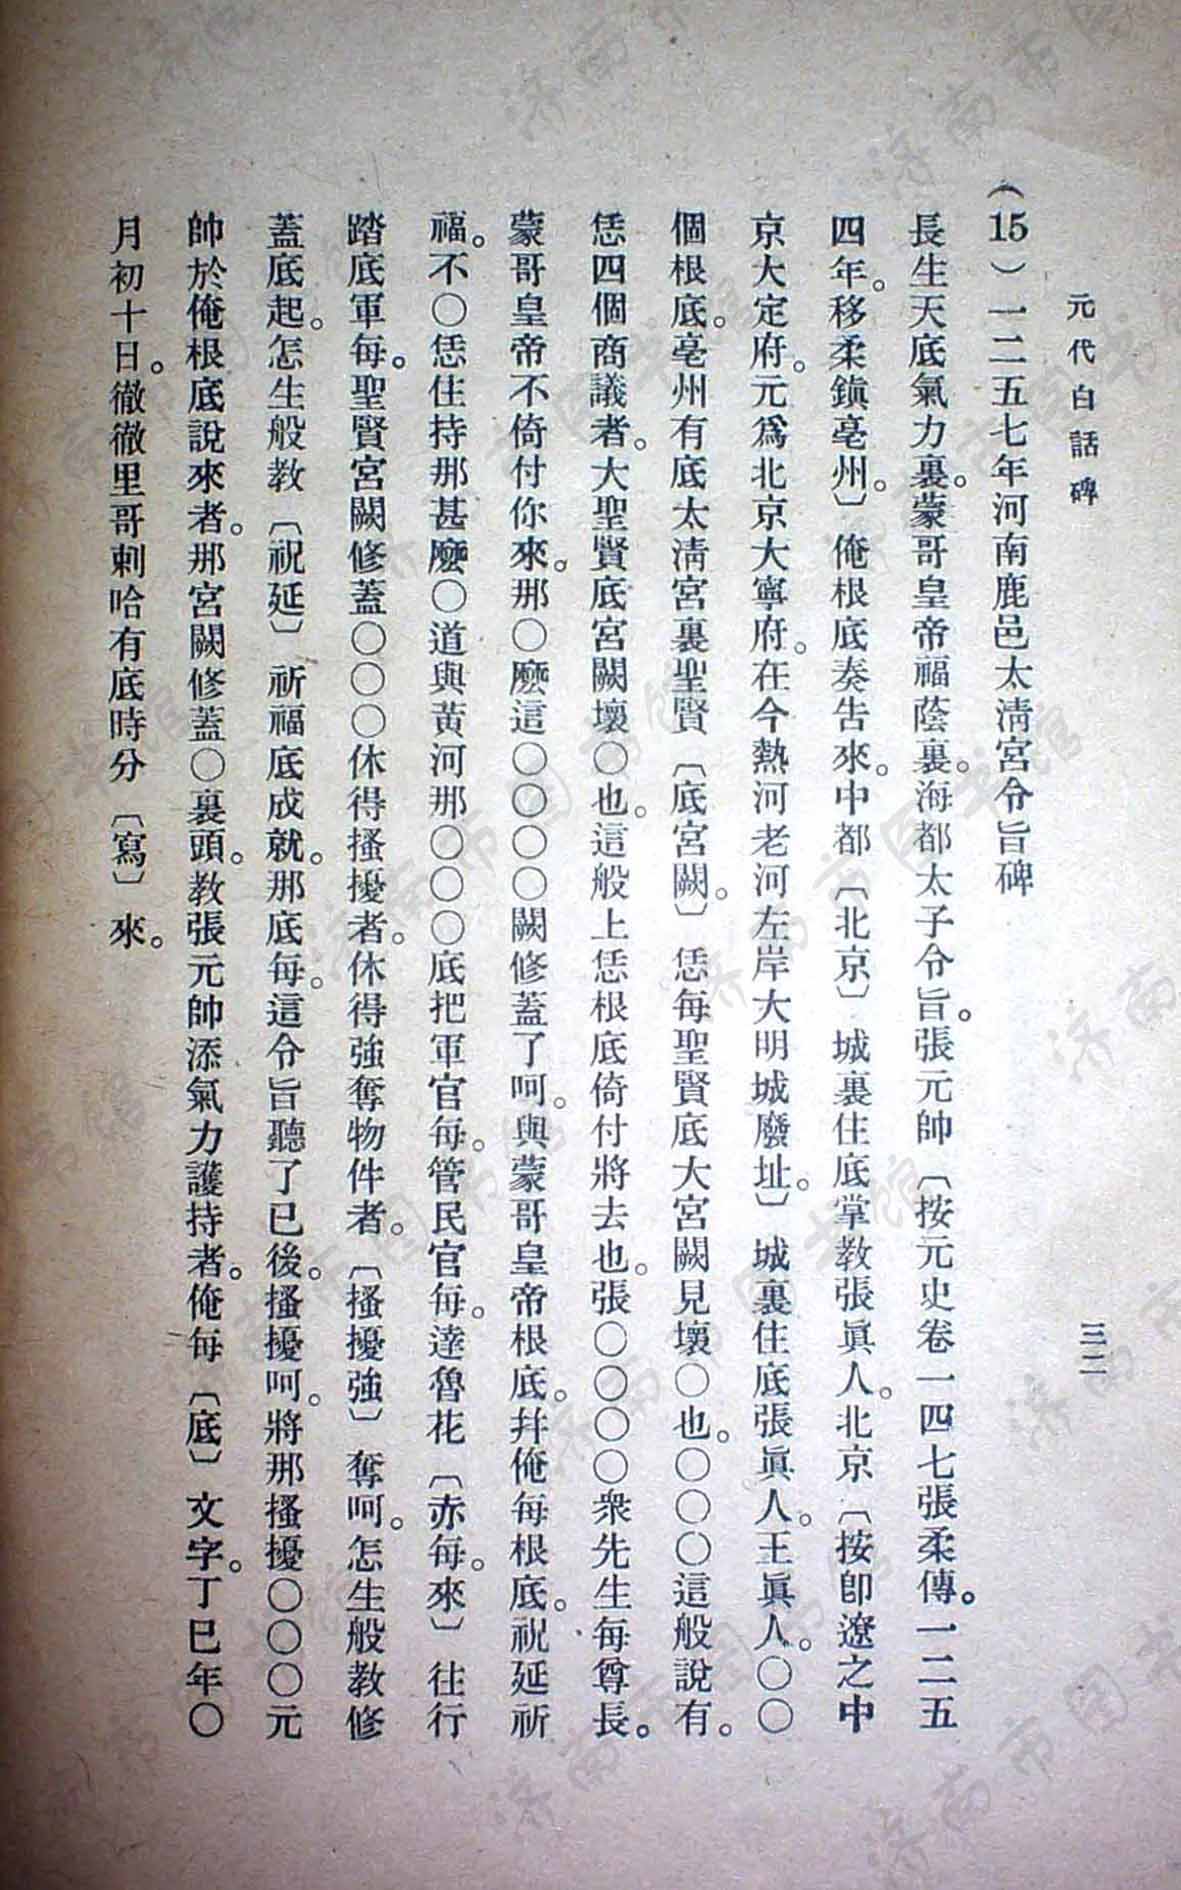 元代白話碑
三二
（15）一二五七年河南鹿邑太淸宮令旨碑
長生天底氣力裏。蒙哥皇帝福蔭裏。海都太子令旨。張元帥〔按元史卷一四七張柔傳。一二五
四年。移柔鎭亳州。〕俺根底奏吿來。中都〔北京〕城裏住底掌教張眞人。北京〔按卽遼之中
京大定府。元爲北京大寧府。在今熱河老河左岸大明城廢址。〕城裏住底張眞人。王眞人。〇〇
個根底。亳州有底太淸宮裏聖賢〔底宮闕。〕恁每聖賢底大宮闕見壞〇也。〇〇〇這般說有。
恁四個商議者。大聖賢底宮闕壞〇也。這般上恁根底倚付將去也。張〇〇〇〇衆先生每尊長。
蒙哥皇帝不倚付你來。那〇麼這〇〇〇〇闕修蓋了呵。與蒙哥皇帝根底。幷俺每根底。祝延祈
福。不〇恁住持那甚麼〇道與黃河那〇〇〇底把軍官每。管民官每。達魯花〔赤每。來〕往行
踏底軍每。聖賢宮闕修蓋〇〇〇休得搔擾者。休得強奪物件者。〔搔擾強〕奪呵。怎生般教修
蓋底起。怎生般教〔祝延〕祈福底成就。那底每。這令旨聽了已後。搔擾呵。將那搔擾〇〇〇元
帥於俺根底說來者。那宮闕修蓋〇裏頭。教張元帥添氣力護持者。俺每〔底〕文字。丁巳年〇
月初十日。徹徹里哥剌哈有底時分〔寫〕來。
濟南市图书馆